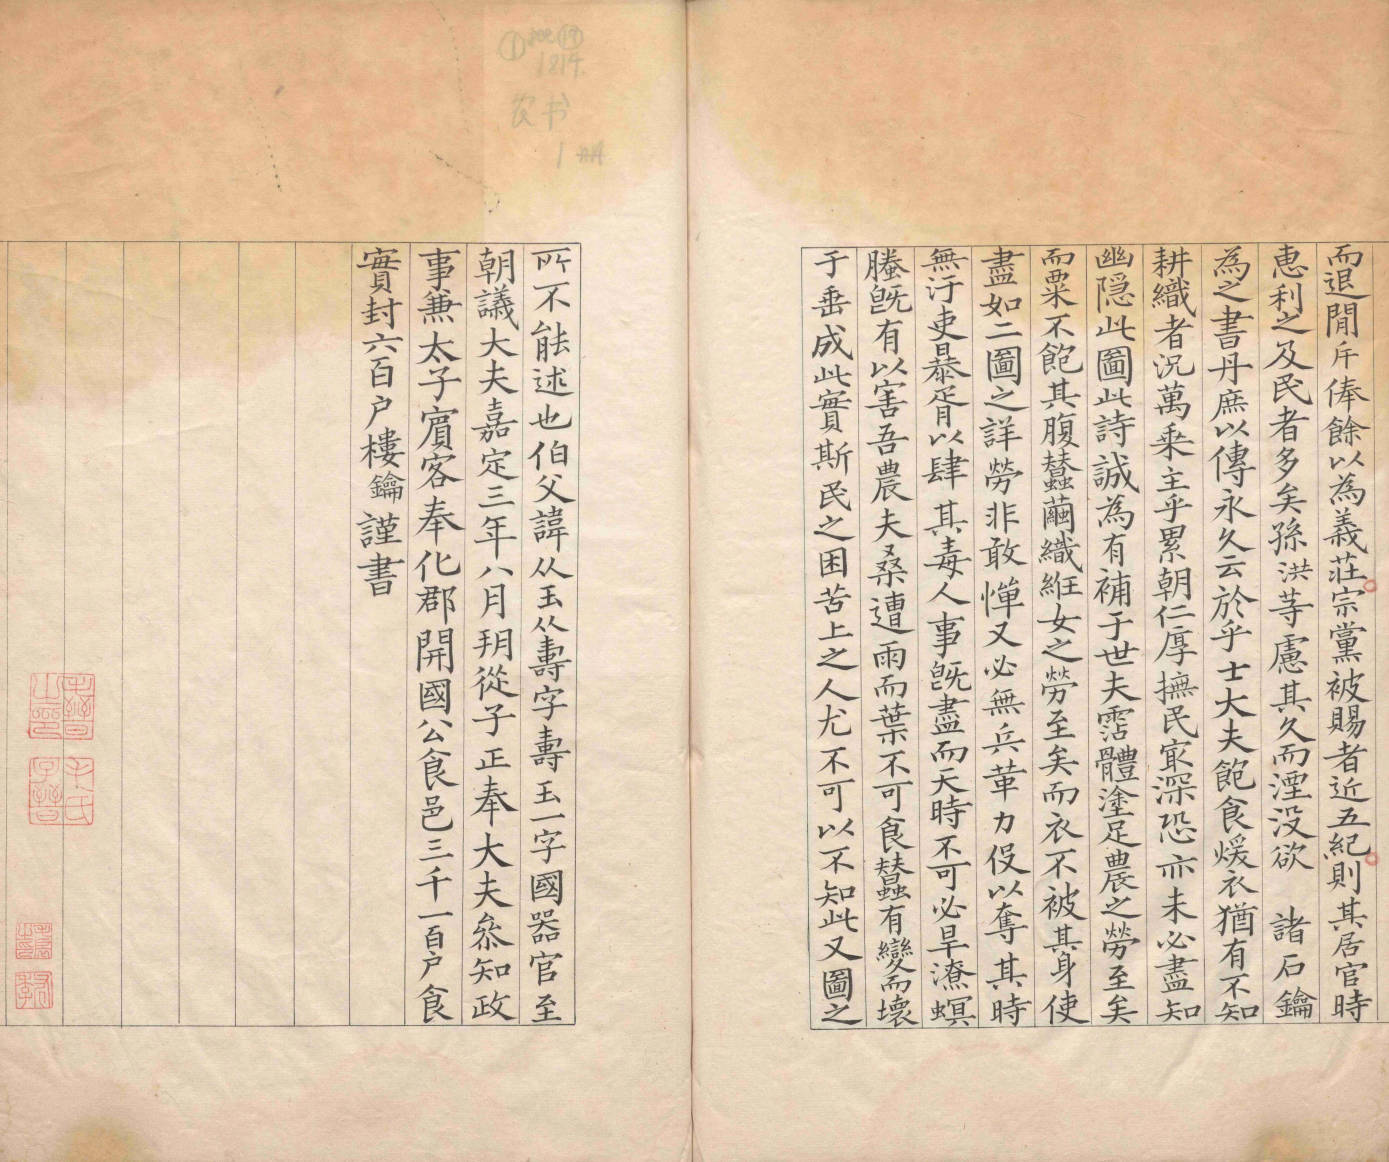 而退閒斥俸餘以為義莊宗黨被賜者近五紀則其居官時
惠利之及民者多矣孫洪等慮其久而湮没欲　諸石鑰
為之書丹庶以傳永久云於乎士大夫飽食煖衣猶有不知
耕織者況萬乘主乎累朝仁厚撫民㝡深恐亦未必盡知
幽隐此圖此詩誠為有補于世夫霑體塗足農之勞至矣
而粟不飽其腹蠶繭織絍女之勞至矣而衣不被其身使
盡如二圖之詳勞非敢憚又必無兵革力役以奪其時
無汙吏暴胥以肆其毒人事旣盡而天時不可必旱潦螟
螣旣有以害吾農夫桑遭雨而葉不可食蠶有變而壞
于垂成此實斯民之困苦上之人尤不可以不知此又圖之
所不能述也伯父諱从玉从壽字壽玉一字國器官至
朝議大夫嘉定三年八月朔從子正奉大夫叅知政
事兼太子賓客奉化郡開國公食邑三千一百户食
實封六百户樓鑰謹書
① 
1214
农书
1 册